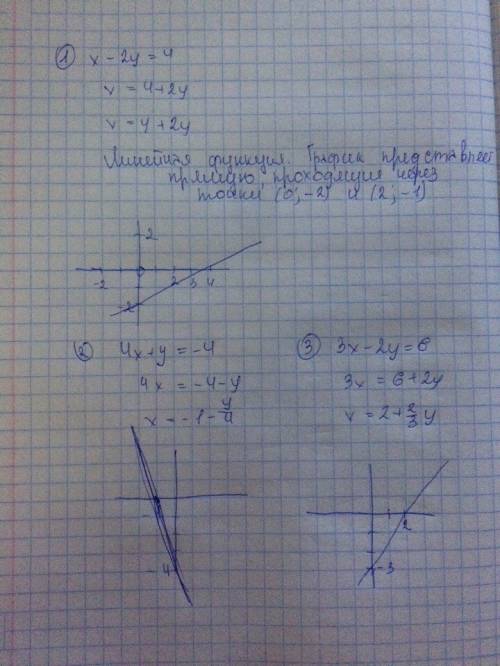 ① x - 2y = 4
x = 4 + 2y
x = y + 2y
Линейная функция. График представляет
прямую, проходящую через
точки (0; -2) и (2; -1)
2
-2 2 3 4
-2
② 4x + y = -4
4x = -4 - y
x = -1 - y/4
-4
③ 3x - 2y = 6
3x = 6 + 2y
x = 2 + 2/3 y
2
-3